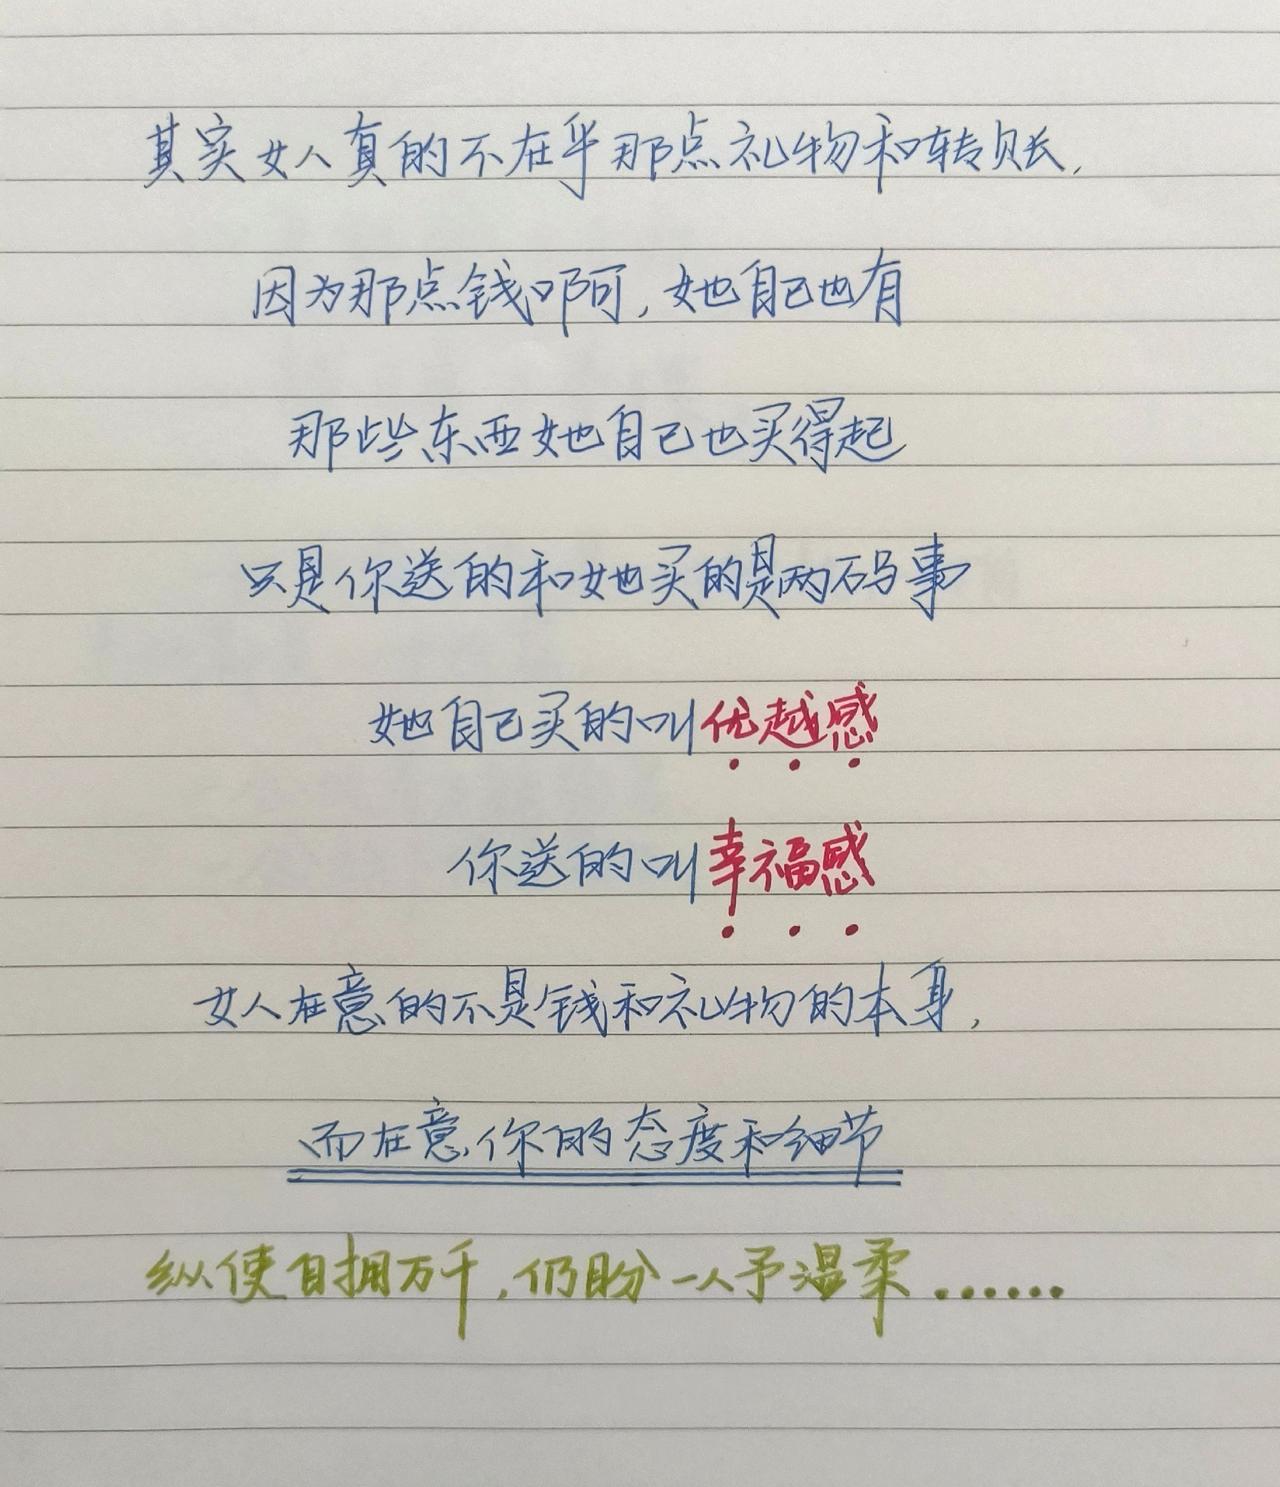 其实女人真的不在乎那点礼物和转账,
因为那点钱啊,她自己也有
那些东西她自己也买得起
只是你送的和她买的是两码事
她自己买的叫优越感
你送的叫幸福感
女人在意的不是钱和礼物的本身,
而在意你的态度和细节
纵使自拥万千,仍盼一人予温柔......